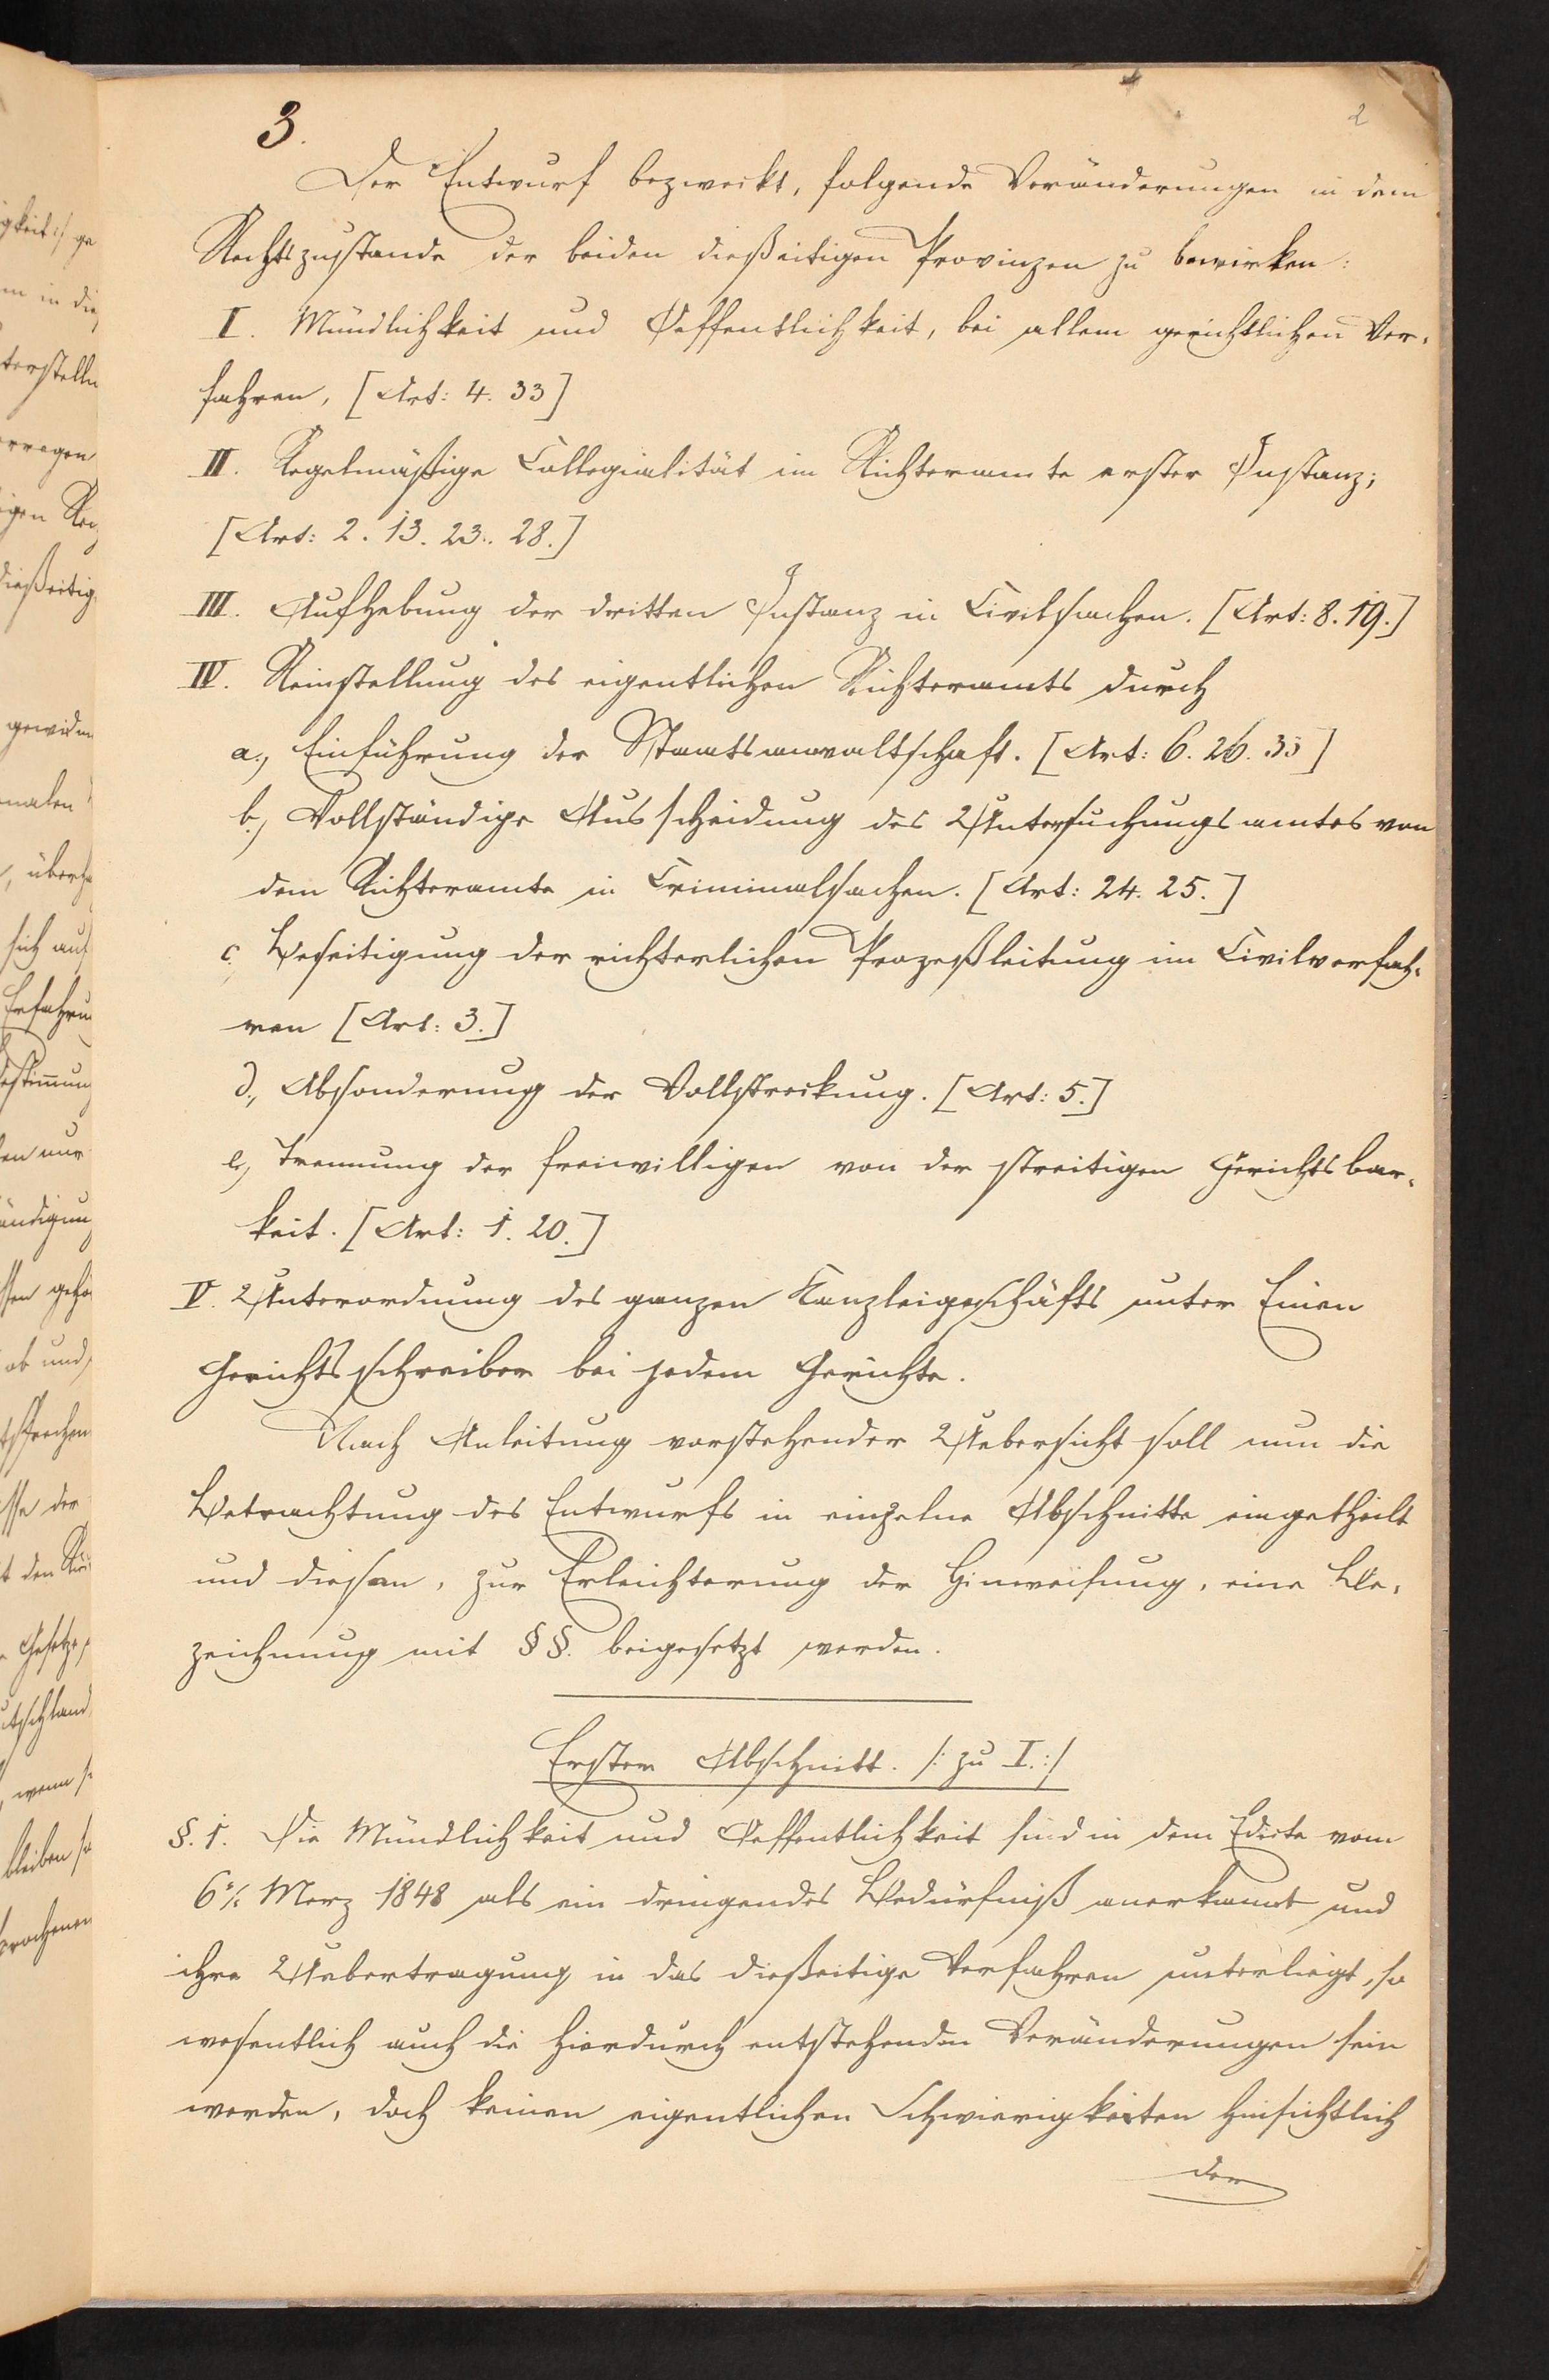 3.
2
Der Entwurf bezweckt, folgende Veränderungen in dem
Rechtszustande der beiden dießeitigen Provinzen zu bewirken:
I. Mündlichkeit und Oeffentlichkeit, bei allem gerichtlichen Ver-
fahren, [Art: 4. 33]
II. Regelmäßige Collegialität im Richteramte erster Instanz;
[Art: 2. 13. 23. 28.]
III. Aufhebung der dritten Instanz in Civilsachen. [Art: 8. 19.]
IV. Reinstellung des eigentlichen Richteramts durch
a., Einführung der Staatsanwaltschaft. [Art: 6. 26. 33]
b.) Vollständige Ausscheidung des Untersuchungsamtes von
dem Richteramte in Criminalsachen. [Art: 24. 25.]
c. Beseitigung der richterlichen Prozeßleitung im Civilverfah-
ren [Art: 3.]
d., Absonderung der Vollstreckung. [Art: 5.]
e) Trennung der freiwilligen von der streitigen Gerichtsbar-
keit. [Art: 1. 20.]
V. Unterordnung des ganzen Kanzleigeschäfts unter Einen
Gerichtsschreiber bei jedem Gerichte.
Nach Anleitung vorstehender Uebersicht soll nun die
Betrachtung des Entwurfs in einzelne Abschnitte eingetheilt
und diesen, zur Erleichterung der Hinweisung, eine Be-
zeichnung mit §§. beigesetzt werden.
Erster Abschnitt. /: zu I. :/
§. 1. Die Mündlichkeit und Oeffentlichkeit sind in dem Edicte vom
6. Merz 1848 als ein dringendes Bedürfniß anerkannt und
ihre Uebertragung in das dießeitige Verfahren unterliegt, so
wesentlich auch die hierdurch entstehenden Veränderungen sein
werden, doch keinen eigentlichen Schwierigkeiten hinsichtlich
der